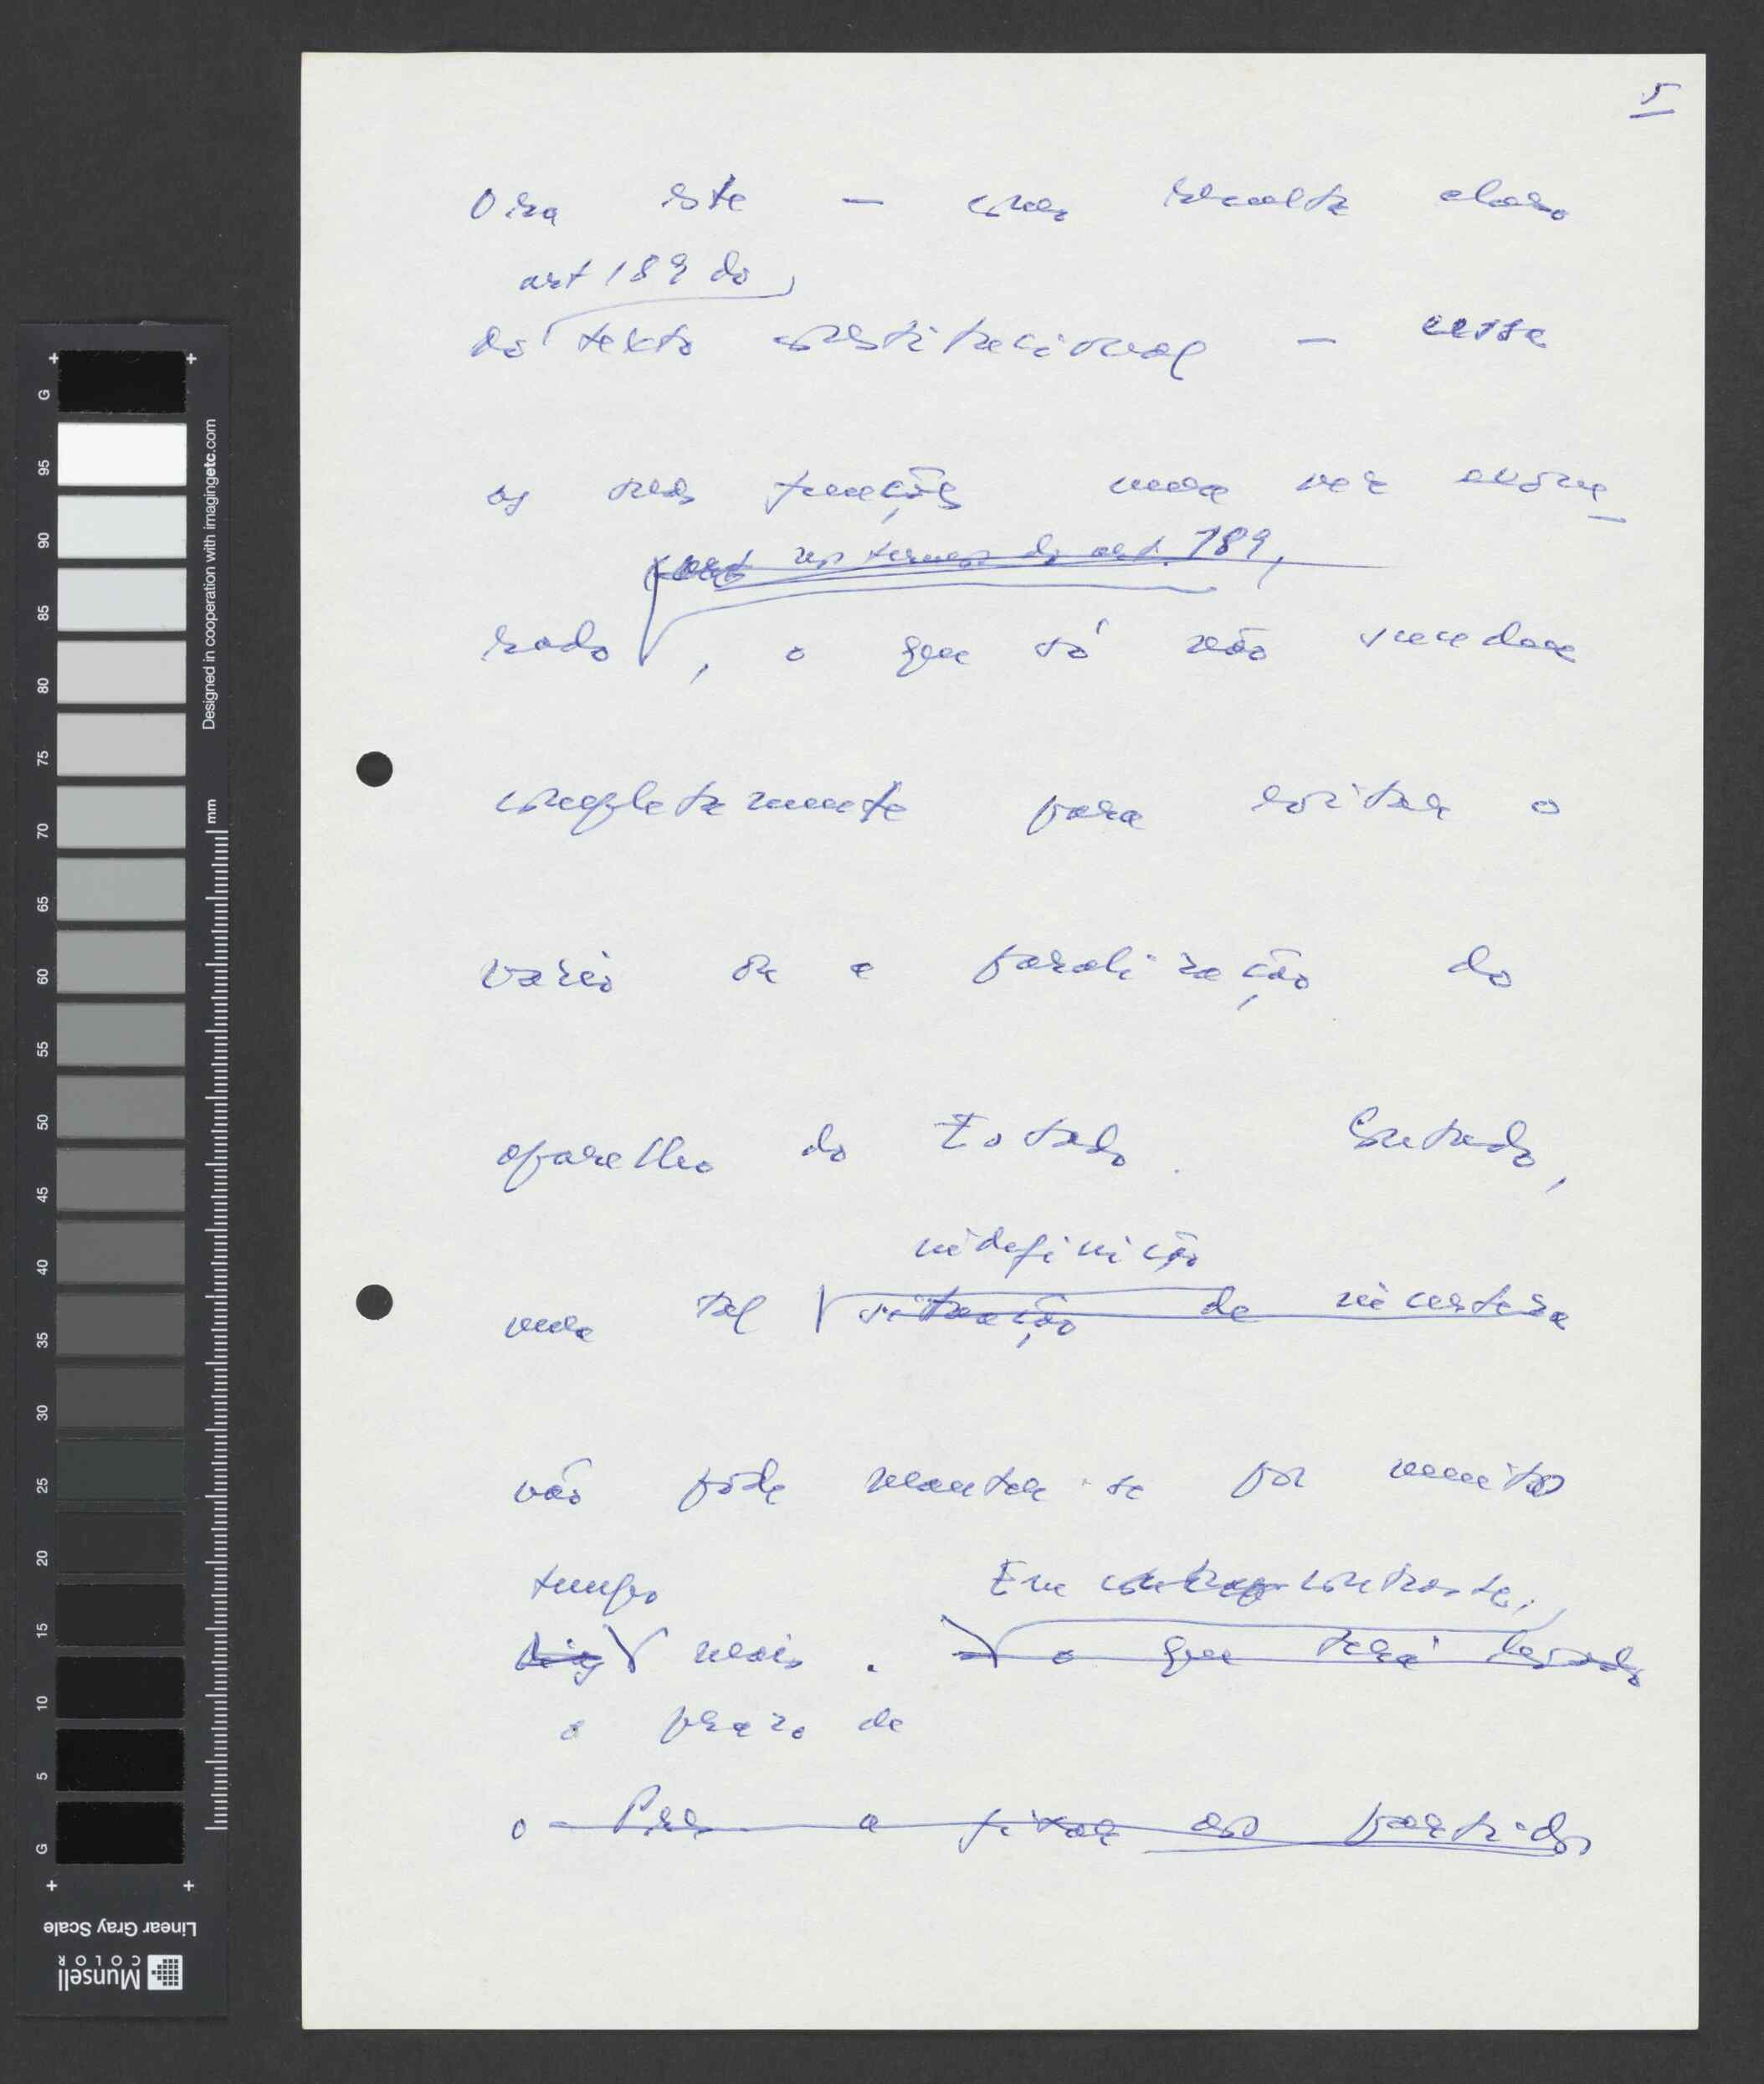 5
Ora este — como resulta claro
art 189 do
do texto constitucional — cessa
as suas funções uma vez exone
nos termos do art. 189,
rado, o que só não sucede
completamente para evitar o
vazio ou a paralização do
aparelho do Estado. Contudo,
indefinição
uma tal situação de incerteza
não pode manter-se por muito
tempo Em contraste,
dias mais. o que terá levado
o prazo de
o P.R. a fixar aos partidos
G 95 90 85 80 75 70 65 60 55 50 45 40 35 30 25 20 15 10 5 G
mm
Designed in cooperation with imagingetc.com
Linear Gray Scale
Munsell
COLOR